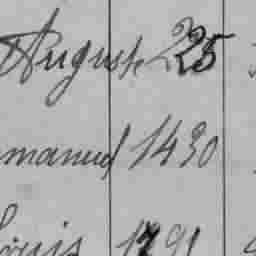 Auguste 225
manuel 1430
Louis 1791